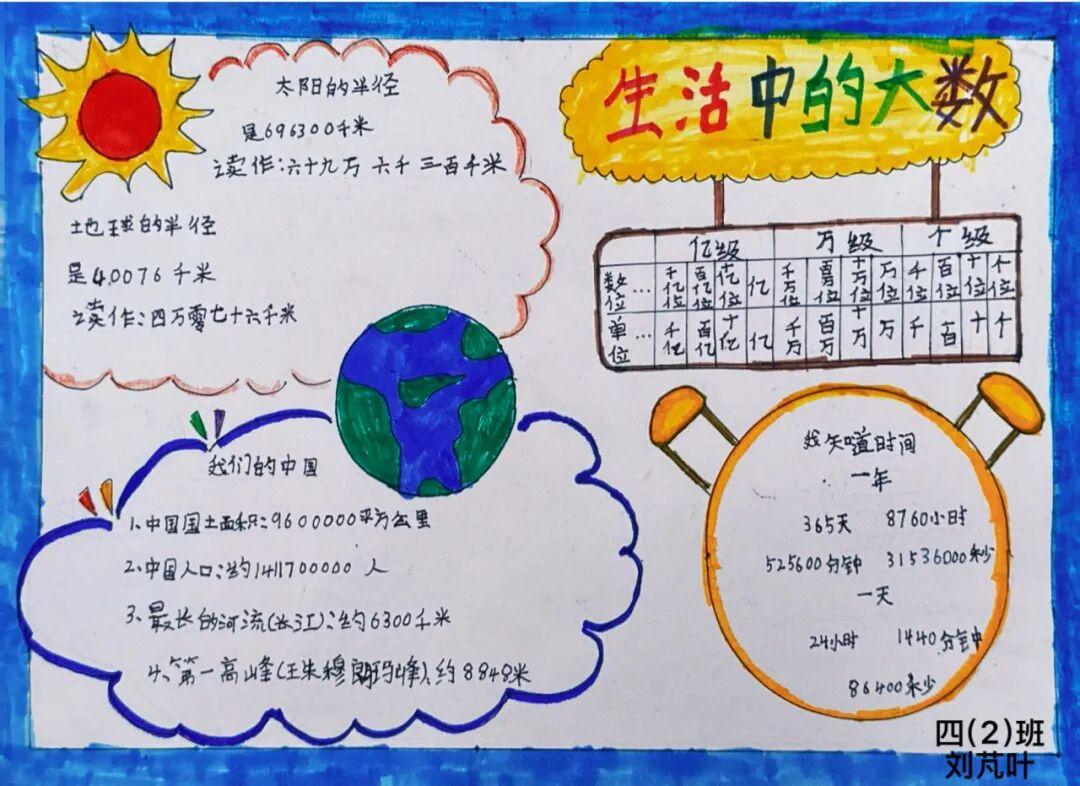 生活中的大数
太阳的半径
是696300千米
读作:六十九万六千三百千米
地球的半径
是40076千米
读作:四万零七十六千米
亿级 万级 个级
数位 … 千亿位 百亿位 十亿位 亿 千万位 百万位 十万位 万位 千位 百位 十位 个位
单位 … 千亿 百亿 十亿 亿 千万 百万 十万 万 千 百 十 个
我们的中国
1、中国国土面积:9600000平方公里
2、中国人口:约1411700000人
3、最长的河流(长江):约6300千米
4、第一高山峰(珠穆朗玛峰)约8848米
我知道时间
一年
365天 8760小时
525600分钟 31536000秒
一天
24小时 1440分钟
86400秒
四(2)班
刘芃叶